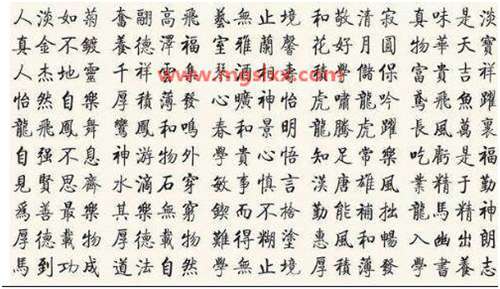 人淡如菊 奮翮高飛 藝無止境 和敬清寂 真味是淡
真金不鍍 養德澤福 室雅蘭馨 花好月圓 物華天寶
人杰地靈 千祥雲集 琴 學 保 富貴吉祥
www.mgslxx.com
怡然自樂 厚積薄發 心曠神怡 虎嘯龍吟 鳶飛魚躍
龍飛鳳舞 鸞鳳和鳴 春和景明 龍騰虎躍 長風萬裏
自强不息 神游物外 學貴心悟 知足常樂 吃虧是福
見賢思齊 水滴石穿 敏事慎言 漢唐雄風 業精于勤
爲善最樂 其樂無窮 鍥而不捨 勤能補拙 龍馬精神
厚德載物 厚德載物 難得糊塗 惠風和暢 入幽出朗
馬到功成 道法自然 學無止境 厚積薄發 學書養志